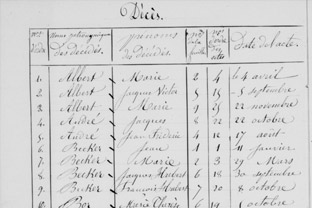 Décès.
Noms patronymiques des décédés prénoms des décédés Date de l'acte
1. Albert Marie 2 4 le 4 avril
2. Albert Jacques Victor 5 septembre
3. Albert Marie 9 25 22 novembre
4. André Jacques 8 22 22 octobre
5. André Jean Frédéric 4 12 17 août
6. Becker Jean 1 1 11 janvier
7. Becker Marie 2 3 29 Mars
8. Becker Jacques Hubert 6 18 30 septembre
9. Becker François Hubert 7 20 8 octobre
10. Marie Octobre